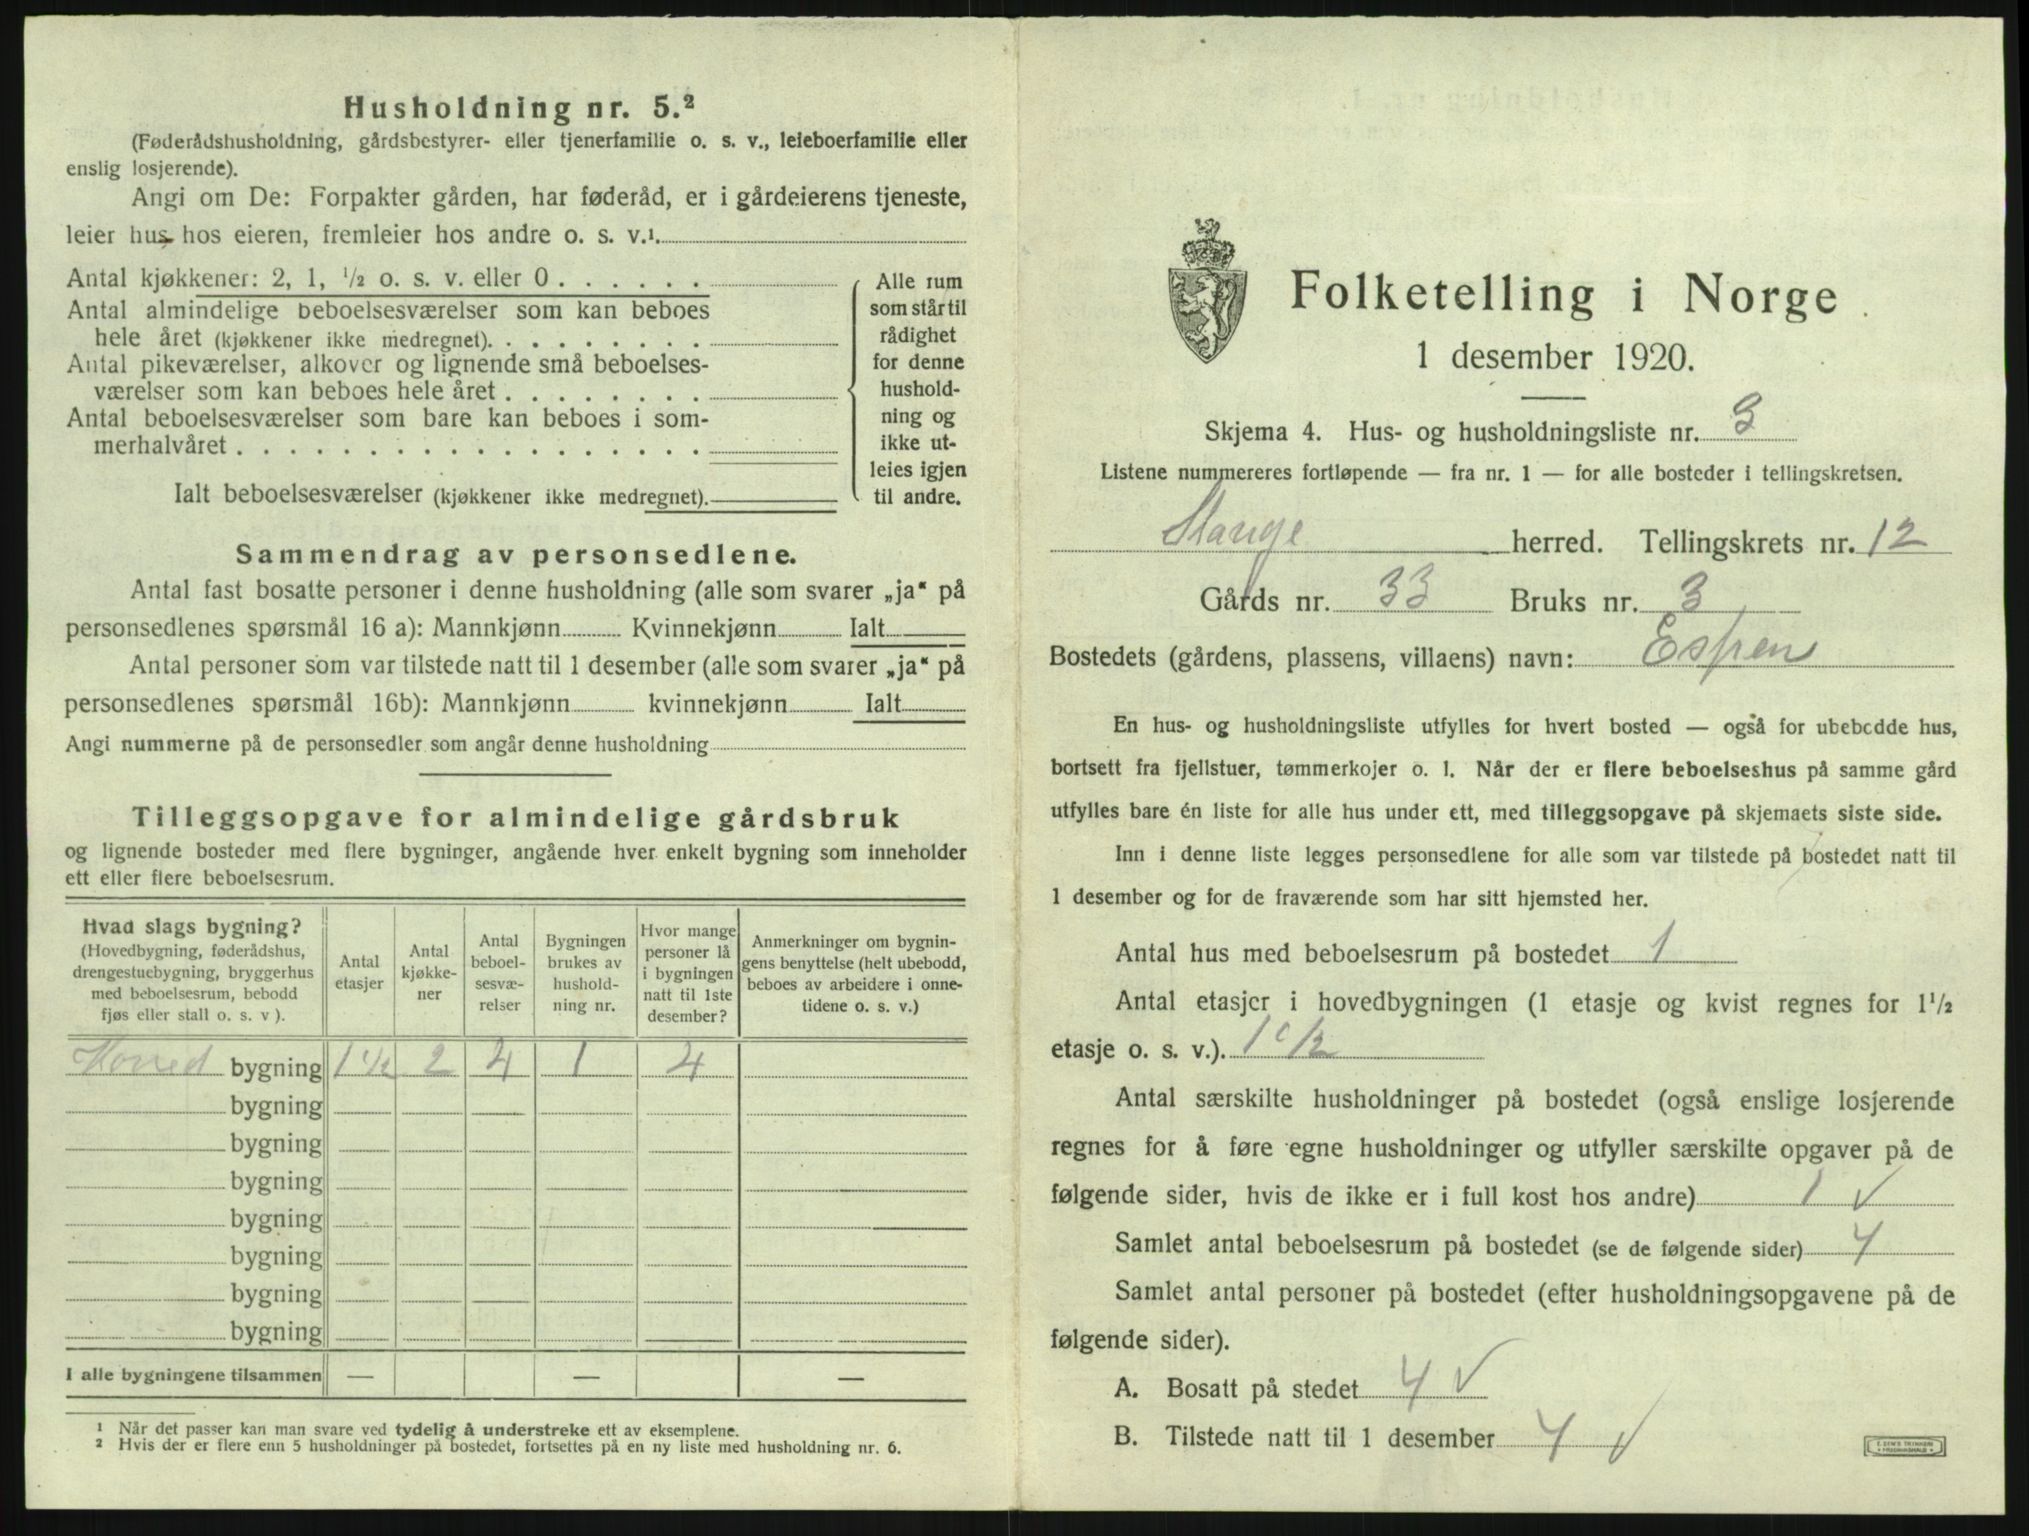 Husholdning nr. 5.²
(Føderådshusholdning, gårdsbestyrer- eller tjenerfamilie o. s. v., leieboerfamilie eller
enslig losjerende).
Angi om De: Forpakter gården, har føderåd, er i gårdeierens tjeneste,
leier hus hos eieren, fremleier hos andre o. s. v.¹.
Antal kjøkkener: 2, 1, ½ o. s. v. eller 0 . . . . . .
Antal almindelige beboelsesværelser som kan beboes
hele året (kjøkkener ikke medregnet). . . . . . . . .
Antal pikeværelser, alkover og lignende små beboelses-
værelser som kan beboes hele året . . . . . . . .
Antal beboelsesværelser som bare kan beboes i som-
merhalvåret . . . . . . . . . . . . . . . . . .
Ialt beboelsesværelser (kjøkkener ikke medregnet).
Alle rum
som står til
rådighet
for denne
hushold-
ning og
ikke ut-
leies igjen
til andre.
Sammendrag av personsedlene.
Antal fast bosatte personer i denne husholdning (alle som svarer „ja“ på
personsedlenes spørsmål 16 a): Mannkjønn Kvinnekjønn Ialt
Antal personer som var tilstede natt til 1 desember (alle som svarer „ja“ på
personsedlenes spørsmål 16b): Mannkjønn kvinnekjønn Ialt
Angi nummerne på de personsedler som angår denne husholdning
Tilleggsopgave for almindelige gårdsbruk
og lignende bosteder med flere bygninger, angående hver enkelt bygning som inneholder
ett eller flere beboelsesrum.
Hvad slags bygning?
(Hovedbygning, føderådshus,
drengestuebygning, bryggerhus
med beboelsesrum, bebodd
fjøs eller stall o. s. v ).
Antal
etasjer
Antal
kjøkke-
ner
Antal
beboel-
sesvæ-
relser
Bygningen
brukes av
hushold-
ning nr.
Hvor mange
personer lå
i bygningen
natt til 1ste
desember?
Anmerkninger om bygnin-
gens benyttelse (helt ubebodd,
beboes av arbeidere i onne-
tidene o. s. v.)
Hoved bygning 1 1/2 2 4 1 4
bygning
bygning
bygning
bygning
bygning
bygning
bygning
I alle bygningene tilsammen — — —
¹ Når det passer kan man svare ved tydelig å understreke ett av eksemplene.
² Hvis der er flere enn 5 husholdninger på bostedet, fortsettes på en ny liste med husholdning nr. 6.
Folketelling i Norge
1 desember 1920.
Skjema 4. Hus- og husholdningsliste nr. 3
Listene nummereres fortløpende — fra nr. 1 — for alle bosteder i tellingskretsen.
Stange herred. Tellingskrets nr. 12
Gårds nr. 33 Bruks nr. 3
Bostedets (gårdens, plassens, villaens) navn: Espen
En hus- og husholdningsliste utfylles for hvert bosted — også for ubebodde hus,
bortsett fra fjellstuer, tømmerkojer o. l. Når der er flere beboelseshus på samme gård
utfylles bare én liste for alle hus under ett, med tilleggsopgave på skjemaets siste side.
Inn i denne liste legges personsedlene for alle som var tilstede på bostedet natt til
1 desember og for de fraværende som har sitt hjemsted her.
Antal hus med beboelsesrum på bostedet 1
Antal etasjer i hovedbygningen (1 etasje og kvist regnes for 1½
etasje o. s. v.). 1 1/2
Antal særskilte husholdninger på bostedet (også enslige losjerende
regnes for å føre egne husholdninger og utfyller særskilte opgaver på de
følgende sider, hvis de ikke er i full kost hos andre) 1 ✓
Samlet antal beboelsesrum på bostedet (se de følgende sider) 4
Samlet antal personer på bostedet (efter husholdningsopgavene på de
følgende sider).
A. Bosatt på stedet 4 ✓
B. Tilstede natt til 1 desember 4 ✓